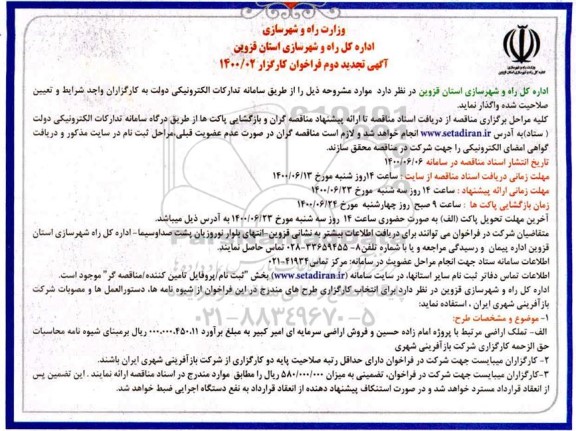 وزارت راه و شهرسازی
اداره کل راه و شهرسازی استان قزوین
آگهی تجدید دوم فراخوان کارگزار ۱۴۰۰/۰۲
اداره کل راه و شهرسازی استان قزوین در نظر دارد موارد مشروحه ذیل را از طریق سامانه تدارکات الکترونیکی دولت به کارگزاران واجد شرایط و تعیین
صلاحیت شده واگذار نماید.
کلیه مراحل برگزاری مناقصه از دریافت اسناد مناقصه تا ارائه پیشنهاد مناقصه گران و بازگشایی پاکت ها از طریق درگاه سامانه تدارکات الکترونیکی دولت
( ستاد)به آدرس www.setadiran.ir انجام خواهد شد و لازم است مناقصه گران در صورت عدم عضویت قبلی،مراحل ثبت نام در سایت مذکور و دریافت
گواهی امضای الکترونیکی را جهت شرکت در مناقصه محقق سازند.
تاریخ انتشار اسناد مناقصه در سامانه ۱۴۰۰/۰۶/۰۶
مهلت زمانی دریافت اسناد مناقصه از سایت : ساعت ۱۴روز شنبه مورخ ۱۴۰۰/۰۶/۱۳
مهلت زمانی ارائه پیشنهاد : ساعت ۱۴ روز سه شنبه مورخ ۱۴۰۰/۰۶/۲۳
زمان بازگشایی پاکت ها : ساعت ۹ صبح روز چهارشنبه مورخ ۱۴۰۰/۰۶/۲۴
آخرین مهلت تحویل پاکت (الف) به صورت حضوری ساعت ۱۴ روز سه شنبه مورخ ۱۴۰۰/۰۶/۲۳ به آدرس ذیل میباشد.
متقاضیان شرکت در فراخوان می توانند برای دریافت اطلاعات بیشتر به نشانی قزوین -انتهای بلوار نوروزیان پشت صداوسیما- اداره کل راه شهرسازی استان
قزوین اداره پیمان و رسیدگی مراجعه و یا با شماره تلفن۸- ۳۳۶۵۹۴۵۵-۰۲۸ تماس حاصل نمایند.
اطلاعات سامانه ستاد جهت انجام مراحل عضویت در سامانه: مرکز تماس۴۱۹۳۴-۰۲۱
اطلاعات تماس دفاتر ثبت نام سایر استانها، در سایت سامانه (www.setadiran.ir) بخش "ثبت نام/پروفایل تامین کننده/مناقصه گر" موجود است.
اداره کل راه و شهرسازی قزوین در نظر دارد برای انتخاب کارگزاری طرح های مندرج در این فراخوان از شیوه نامه ها، دستورالعمل ها و مصوبات شرکت
بازآفرینی شهری ایران ، استفاده نماید:
۱- موضوع و مشخصات طرح:
الف- تملک اراضی مرتبط با پروژه امام زاده حسین و فروش اراضی سرمایه ای امیر کبیر به مبلغ برآورد ۰۰۰،۰۰۰،۴۵۰،۱۱ ریال برمبنای شیوه نامه محاسبات
حق الزحمه کارگزاری شرکت بازآفرینی شهری
۲- کارگزاران میبایست جهت شرکت در فراخوان دارای حداقل رتبه صلاحیت پایه دو کارگزاری از شرکت بازآفرینی شهری ایران باشند.
۳-کارگزاران میبایست جهت شرکت در فراخوان، تضمینی به میزان ۵۸۰/۰۰۰/۰۰۰ ریال را مطابق موارد مندرج در اسناد مناقصه ارائه نمایند . این تضمین پس
از انعقاد قرارداد مسترد خواهد شد و در صورت استنکاف پیشنهاد دهنده از انعقاد قرارداد به نفع دستگاه اجرایی ضبط خواهد شد.
۰۲۱-۸۸۳۴۹۶۷۰-۵